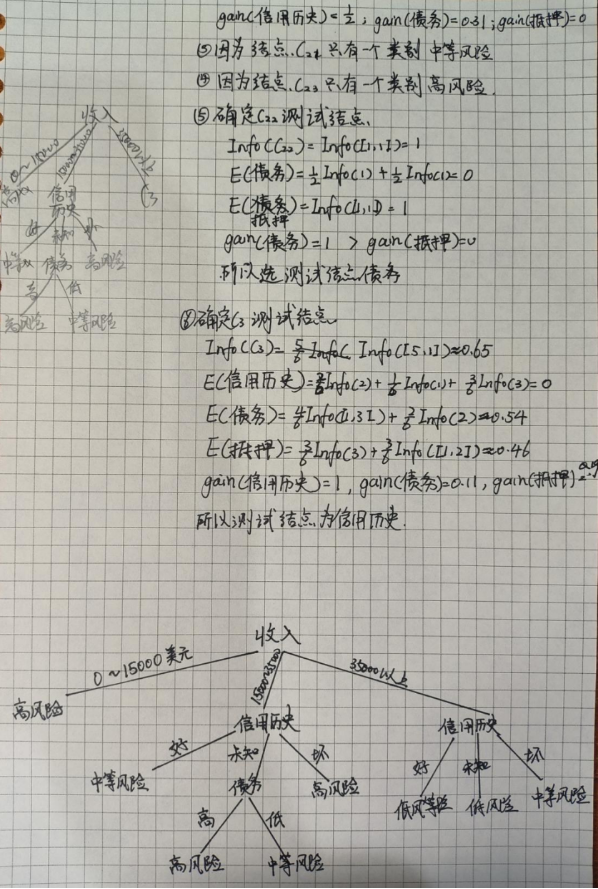 gain(信用历史)=½; gain(债务)=0.31; gain(抵押)=0
③因为结点C₂₁只有一个类别中等风险
④因为结点C₂₃只有一个类别高风险.
⑤确定C₂₂测试结点
Info(C₂₂)=Info([1,1])=1
E(债务)=½Info(1)+½Info(1)=0
E(债务)=Info([1,1])=1
抵押
gain(债务)=1 > gain(抵押)=0
所以选测试结点债务
⑥确定C₃测试结点
Info(C₃)= 5/6 Info( Info([5,1])≈0.65
E(信用历史)=2/6Info(2)+1/6Info(1)+3/6Info(3)=0
E(债务)=4/6Info([1,3])+2/6Info(2)≈0.54
E(抵押)=3/6Info(3)+3/6Info([1,2])≈0.46
gain(信用历史)=1, gain(债务)=0.11, gain(抵押)
所以测试结点为信用历史.
收入
0~15000
15000以上
高风险
信用
历史
好
未知
坏
中等风险
债务
高风险
高
低
高风险
中等风险
收入
0~15000美元
15000~35000
35000以上
高风险
信用历史
信用历史
好
未知
坏
好
未知
坏
中等风险
债务
高风险
低风等险
低风险
中等风险
高
低
高风险
中等风险